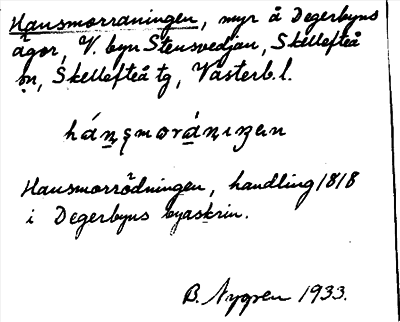 Hansmorraningen, myr å Degerbyns
ägor, V. byn Stensvedjan, Skellefteå
sn, Skellefteå tg, Västerb. l.
hánsmoránıŋen
Hansmorrödningen, handling 1818
i Degerbyns byaskrin.
B. Nygren 1933.